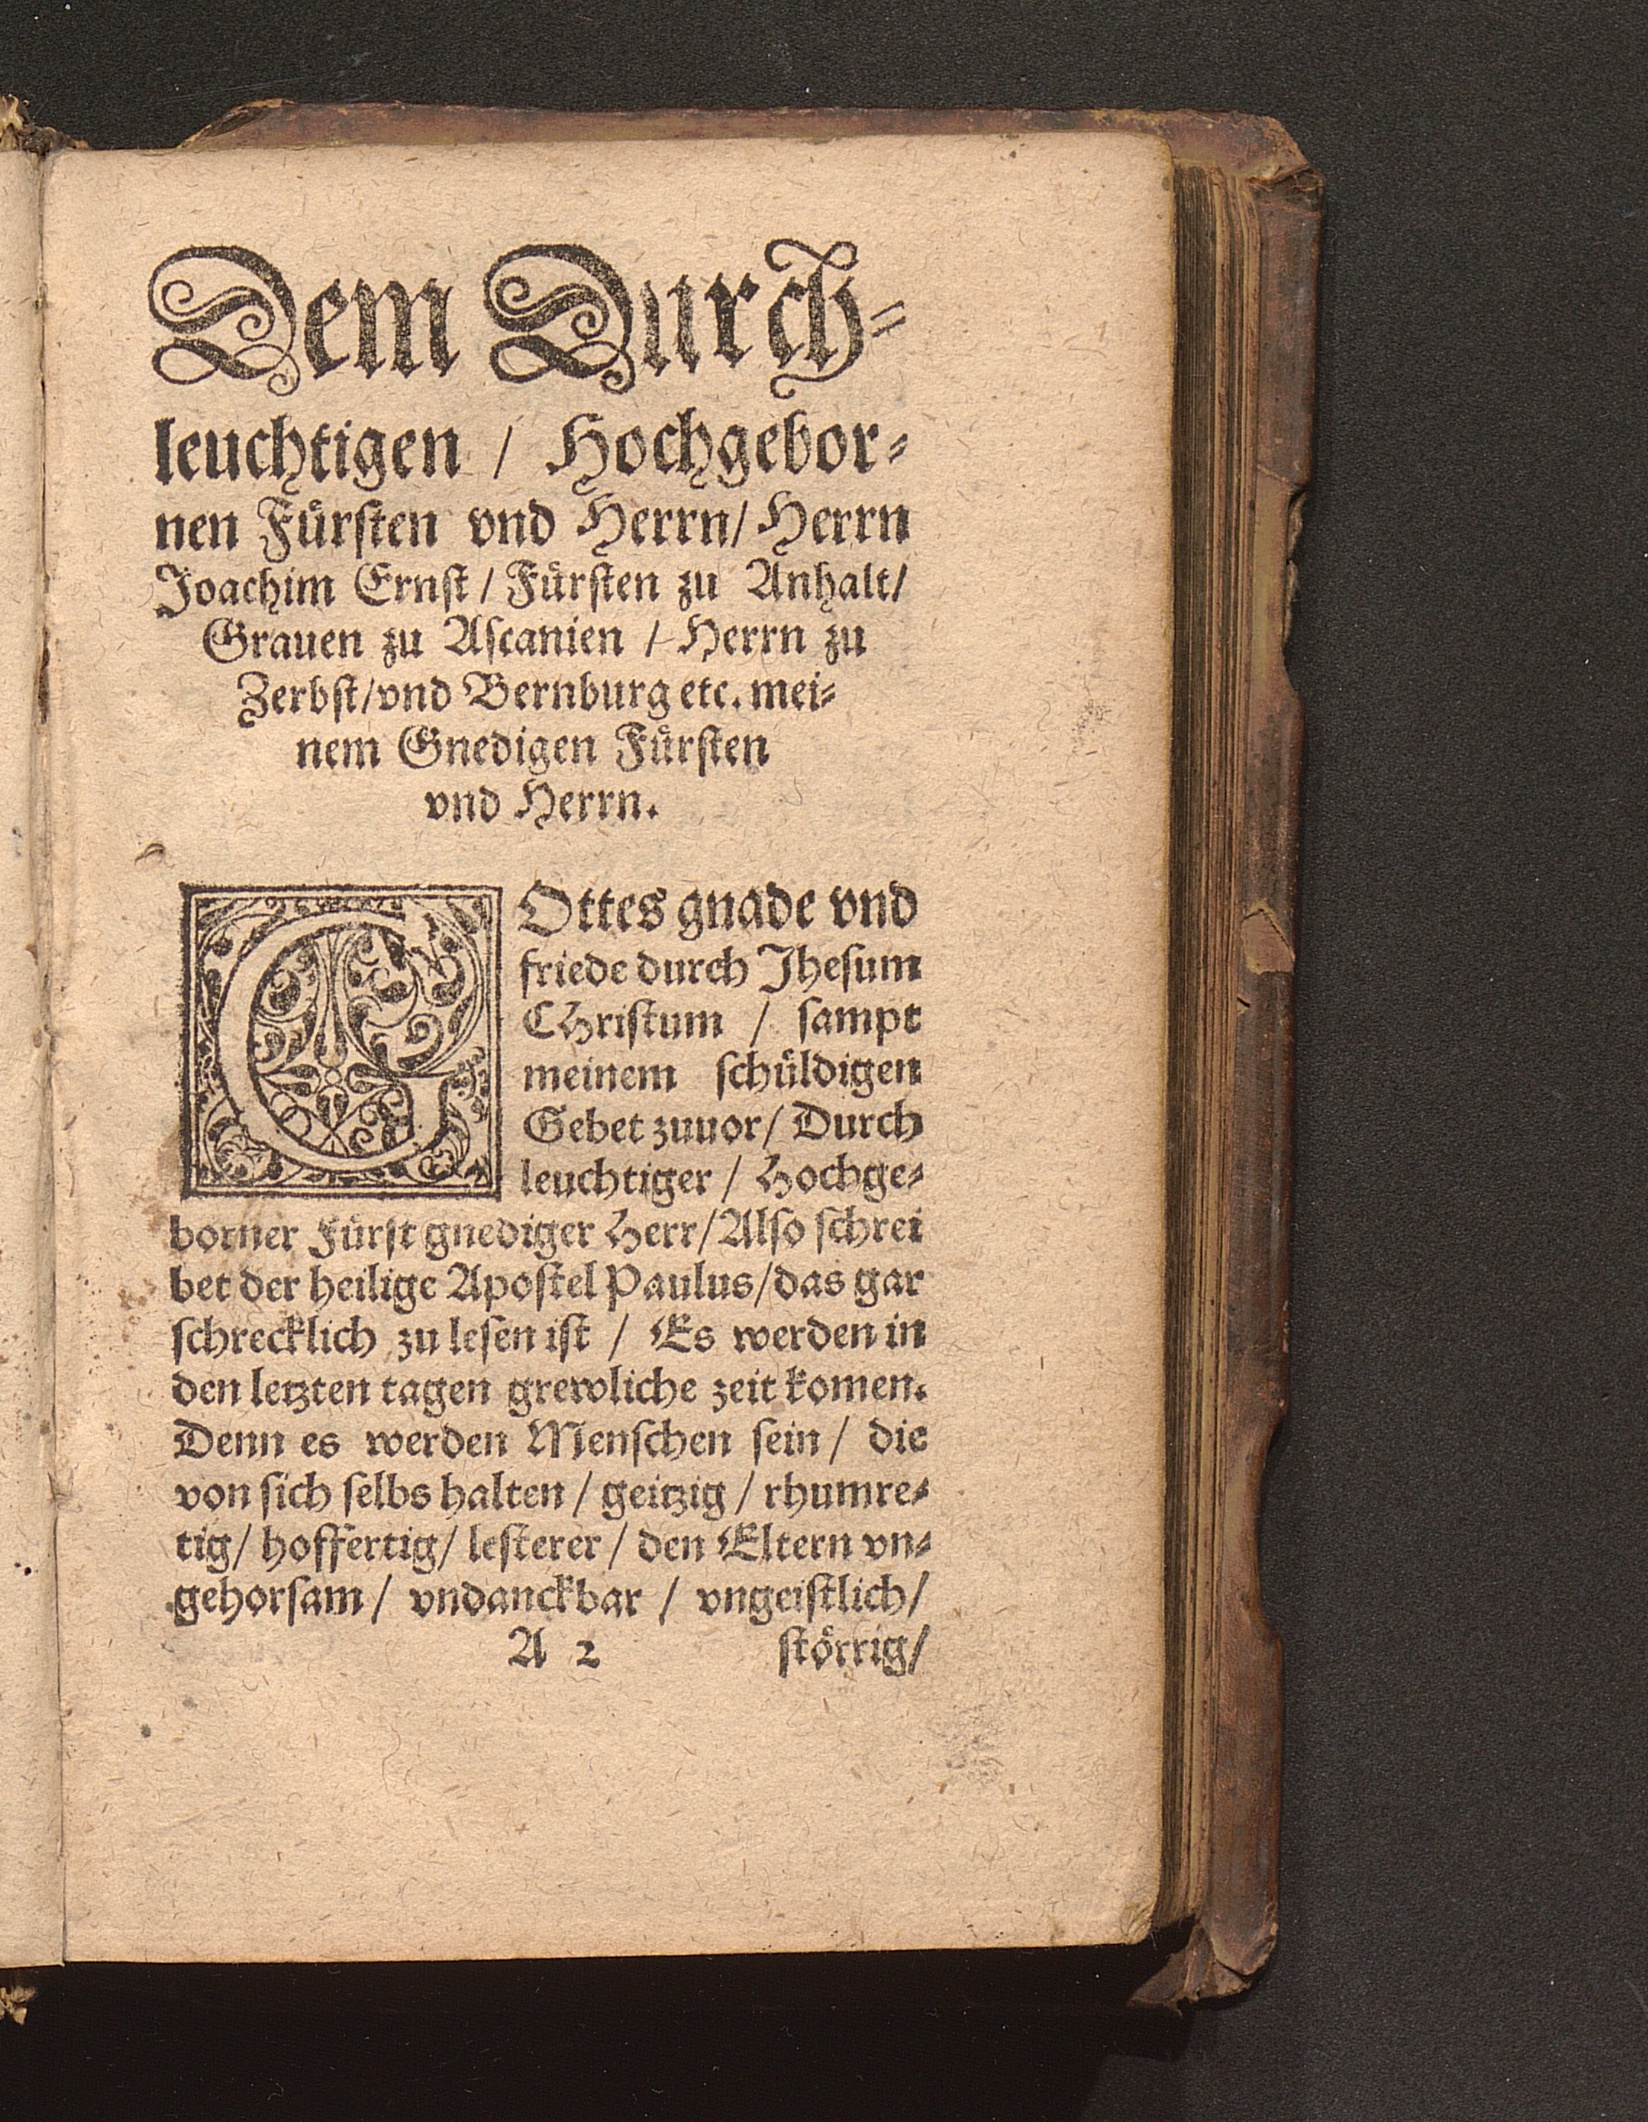 Dem Durch-
leuchtigen / Hochgebor-
nen Fürsten vnd Herrn/ Herrn
Joachim Ernst / Fürsten zu Anhalt/
Grauen zu Ascanien / Herrn zu
Zerbst/vnd Bernburg etc. mei-
nem Gnedigen Fürsten
vnd Herrn.
GOttes gnade vnd
friede durch Jhesum
CHristum / sampt
meinem schüldigen
Gebet zuuor/ Durch
leuchtiger / Hochge-
borner Fürst gnediger Herr/Also schrei
bet der heilige Apostel Paulus/das gar
schrecklich zu lesen ist / Es werden in
den letzten tagen grewliche zeit komen.
Denn es werden Menschen sein / die
von sich selbs halten / geitzig / rhumre-
tig/ hoffertig/ lesterer / den Eltern vn-
gehorsam / vndanckbar / vngeistlich/
A 2 störrig/